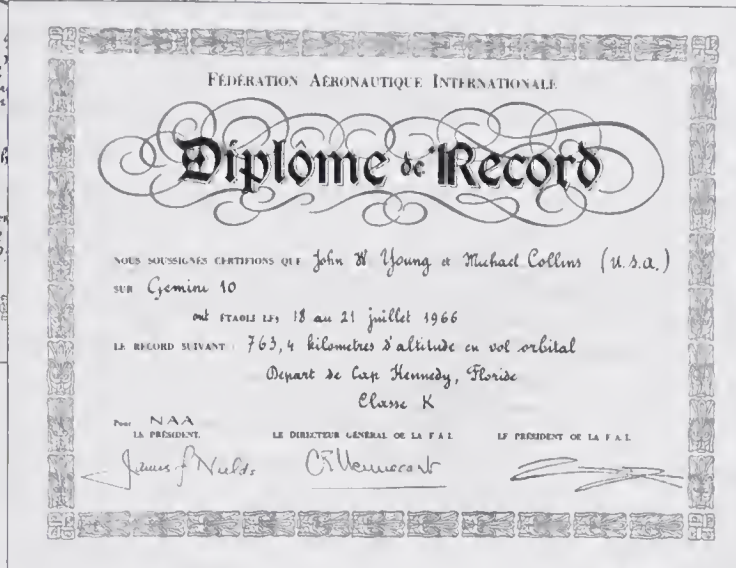 FÉDÉRATION AÉRONAUTIQUE INTERNATIONALE
Diplôme de Record
NOUS SOUSSIGNÉS CERTIFIONS QUE John W Young et Michael Collins (U.S.A.)
SUR Gemini 10
ont ETABLI LES 18 au 21 juillet 1966
LE RECORD SUIVANT : 763,4 kilometres d'altitude en vol orbital
Depart de Cap Kennedy, Floride
Classe K
Pour NAA
LE PRÉSIDENT. LE DIRECTEUR GÉNÉRAL DE LA F A I. LE PRÉSIDENT DE LA F A I.
James F Nields